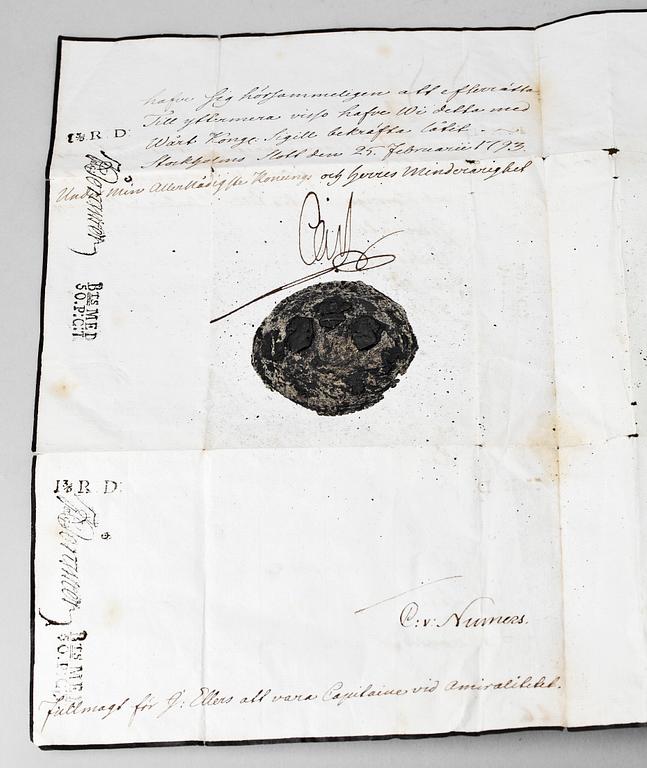 hafve sig hörsammeligen att efterrätta.
Till yttermera visso hafve Wi detta med
Wårt Konge. Sigill bekräfta låtit.
Stockholms Slott den 25. Februarii 1793.
Under Min Allernådigste Konungs och Herres Minderårighet
Carl
R D.
BtsMED
50.P.C.T
R D.
C: v: Numers.
Fullmagt för G: Ellers att vara Capitaine vid Amiralitetet.